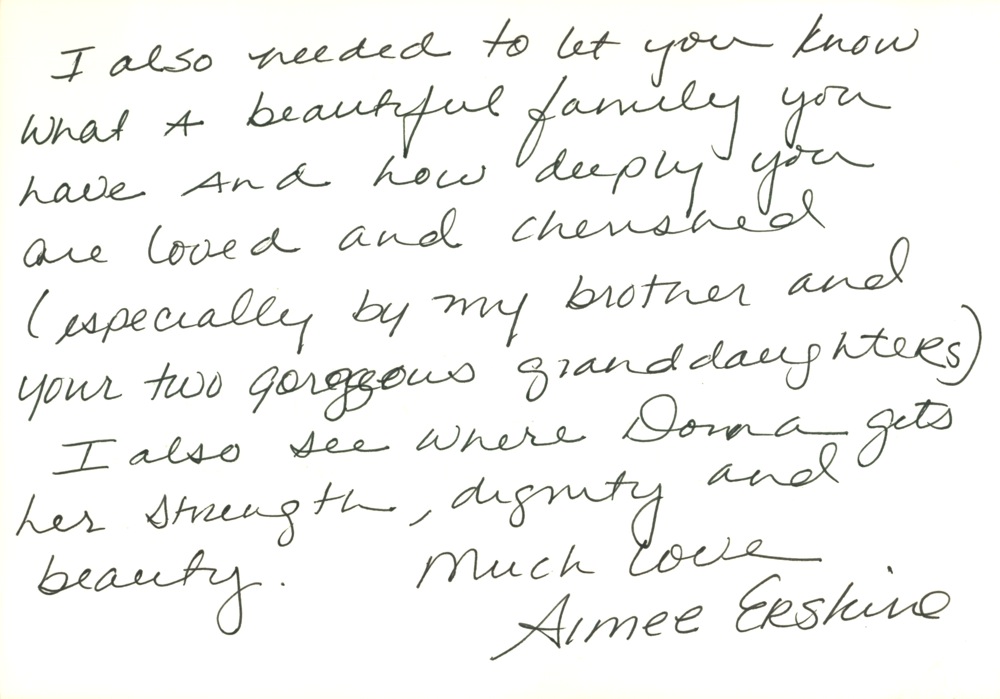 I also needed to let you know
what A beautiful family you
have And how deeply you
are loved and cherished
(especially by my brother and
your two gorgeous granddaughters)
I also see where Donna gets
her strength, dignity and
beauty. Much love
Aimee Erskine